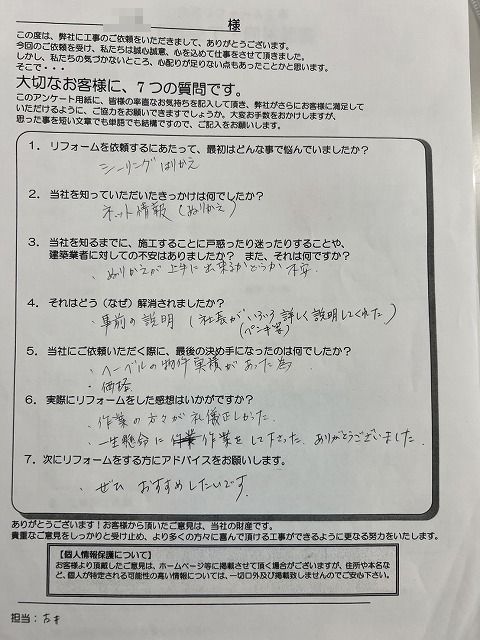 様
この度は、弊社に工事のご依頼をいただきまして、ありがとうございます。
今回のご依頼を受け、私たちは誠心誠意、心を込めて仕事をさせて頂きました。
しかし、私たちの気づかないところ、心配りが足りない点もあったことかと思います。
そこで・・・
大切なお客様に、7つの質問です。
このアンケート用紙に、皆様の率直なお気持ちを記入して頂き、弊社がさらにお客様に満足して
いただけるように、ご協力をお願いできますでしょうか。大変お手数をおかけしますが、
思った事を短い文章でも単語でも結構ですので、ご記入をお願いします。
1. リフォームを依頼するにあたって、最初はどんな事で悩んでいましたか?
シーリングはりかえ
2. 当社を知っていただいたきっかけは何でしたか?
ネット情報(ぬりかえ)
3. 当社を知るまでに、施工することに戸惑ったり迷ったりすることや、
建築業者に対しての不安はありましたか? また、それは何ですか?
・ぬりかえが上手に出来るかどうか不安
4. それはどう(なぜ)解消されましたか?
・事前の説明(社長がいろいろ詳しく説明してくれた)
(ペンキ等)
5. 当社にご依頼いただく際に、最後の決め手になったのは何でしたか?
・ヘーベルの物件実績があった為
・価格
6. 実際にリフォームをした感想はいかがですか?
・作業の方々が礼儀正しかった
・一生懸命に作業をして下さった ありがとうございました。
7. 次にリフォームをする方にアドバイスをお願いします。
・ぜひ おすすめしたいです
ありがとうございます!お客様から頂いたご意見は、当社の財産です。
貴重なご意見をしっかりと受け止め、より多くの方々に喜んで頂ける工事ができるように更なる努力をいたします。
【個人情報保護について】
お客様より頂戴したご意見は、ホームページ等に掲載させて頂く場合がございますが、住所や本名な
ど、個人が特定される可能性の高い情報については、一切口外及び掲載致しませんのでご安心下さい。
担当: